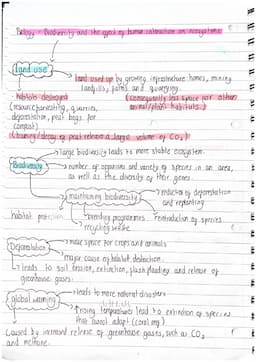 Biology - Biodiversity and the effect of human interaction on ecosystems
land use
land used up by growing infrastructure homes, mining
landfills, farms and quarrying.
habitats destroyed
(consequently less space for other
animal/plant habitats.)
(resource harvesting, quarries,
deforestation, peat bogs for
compost)
(burning/decay of peat release a large volume of CO2)
large biodiversity leads to more stable ecosystem.
Biodiversity
number of organisms and variety of species in an area,
as well as the diversity of their genes.
maintaining biodiversity
reduction of deforestation
and replanting
habitat protection
breeding programmes
reintroduction of species
recycling waste
Deforestation
more space for crops and animals
major cause of habitat destruction.
leads to soil erosion, extinction, flash flooding and release of
greenhouse gases.
global warming
leads to more natural disasters
rising temperatures lead to extinction of species
that cannot adapt (coral)
Caused by increased release of greenhouse gases, such as CO2
and methane.